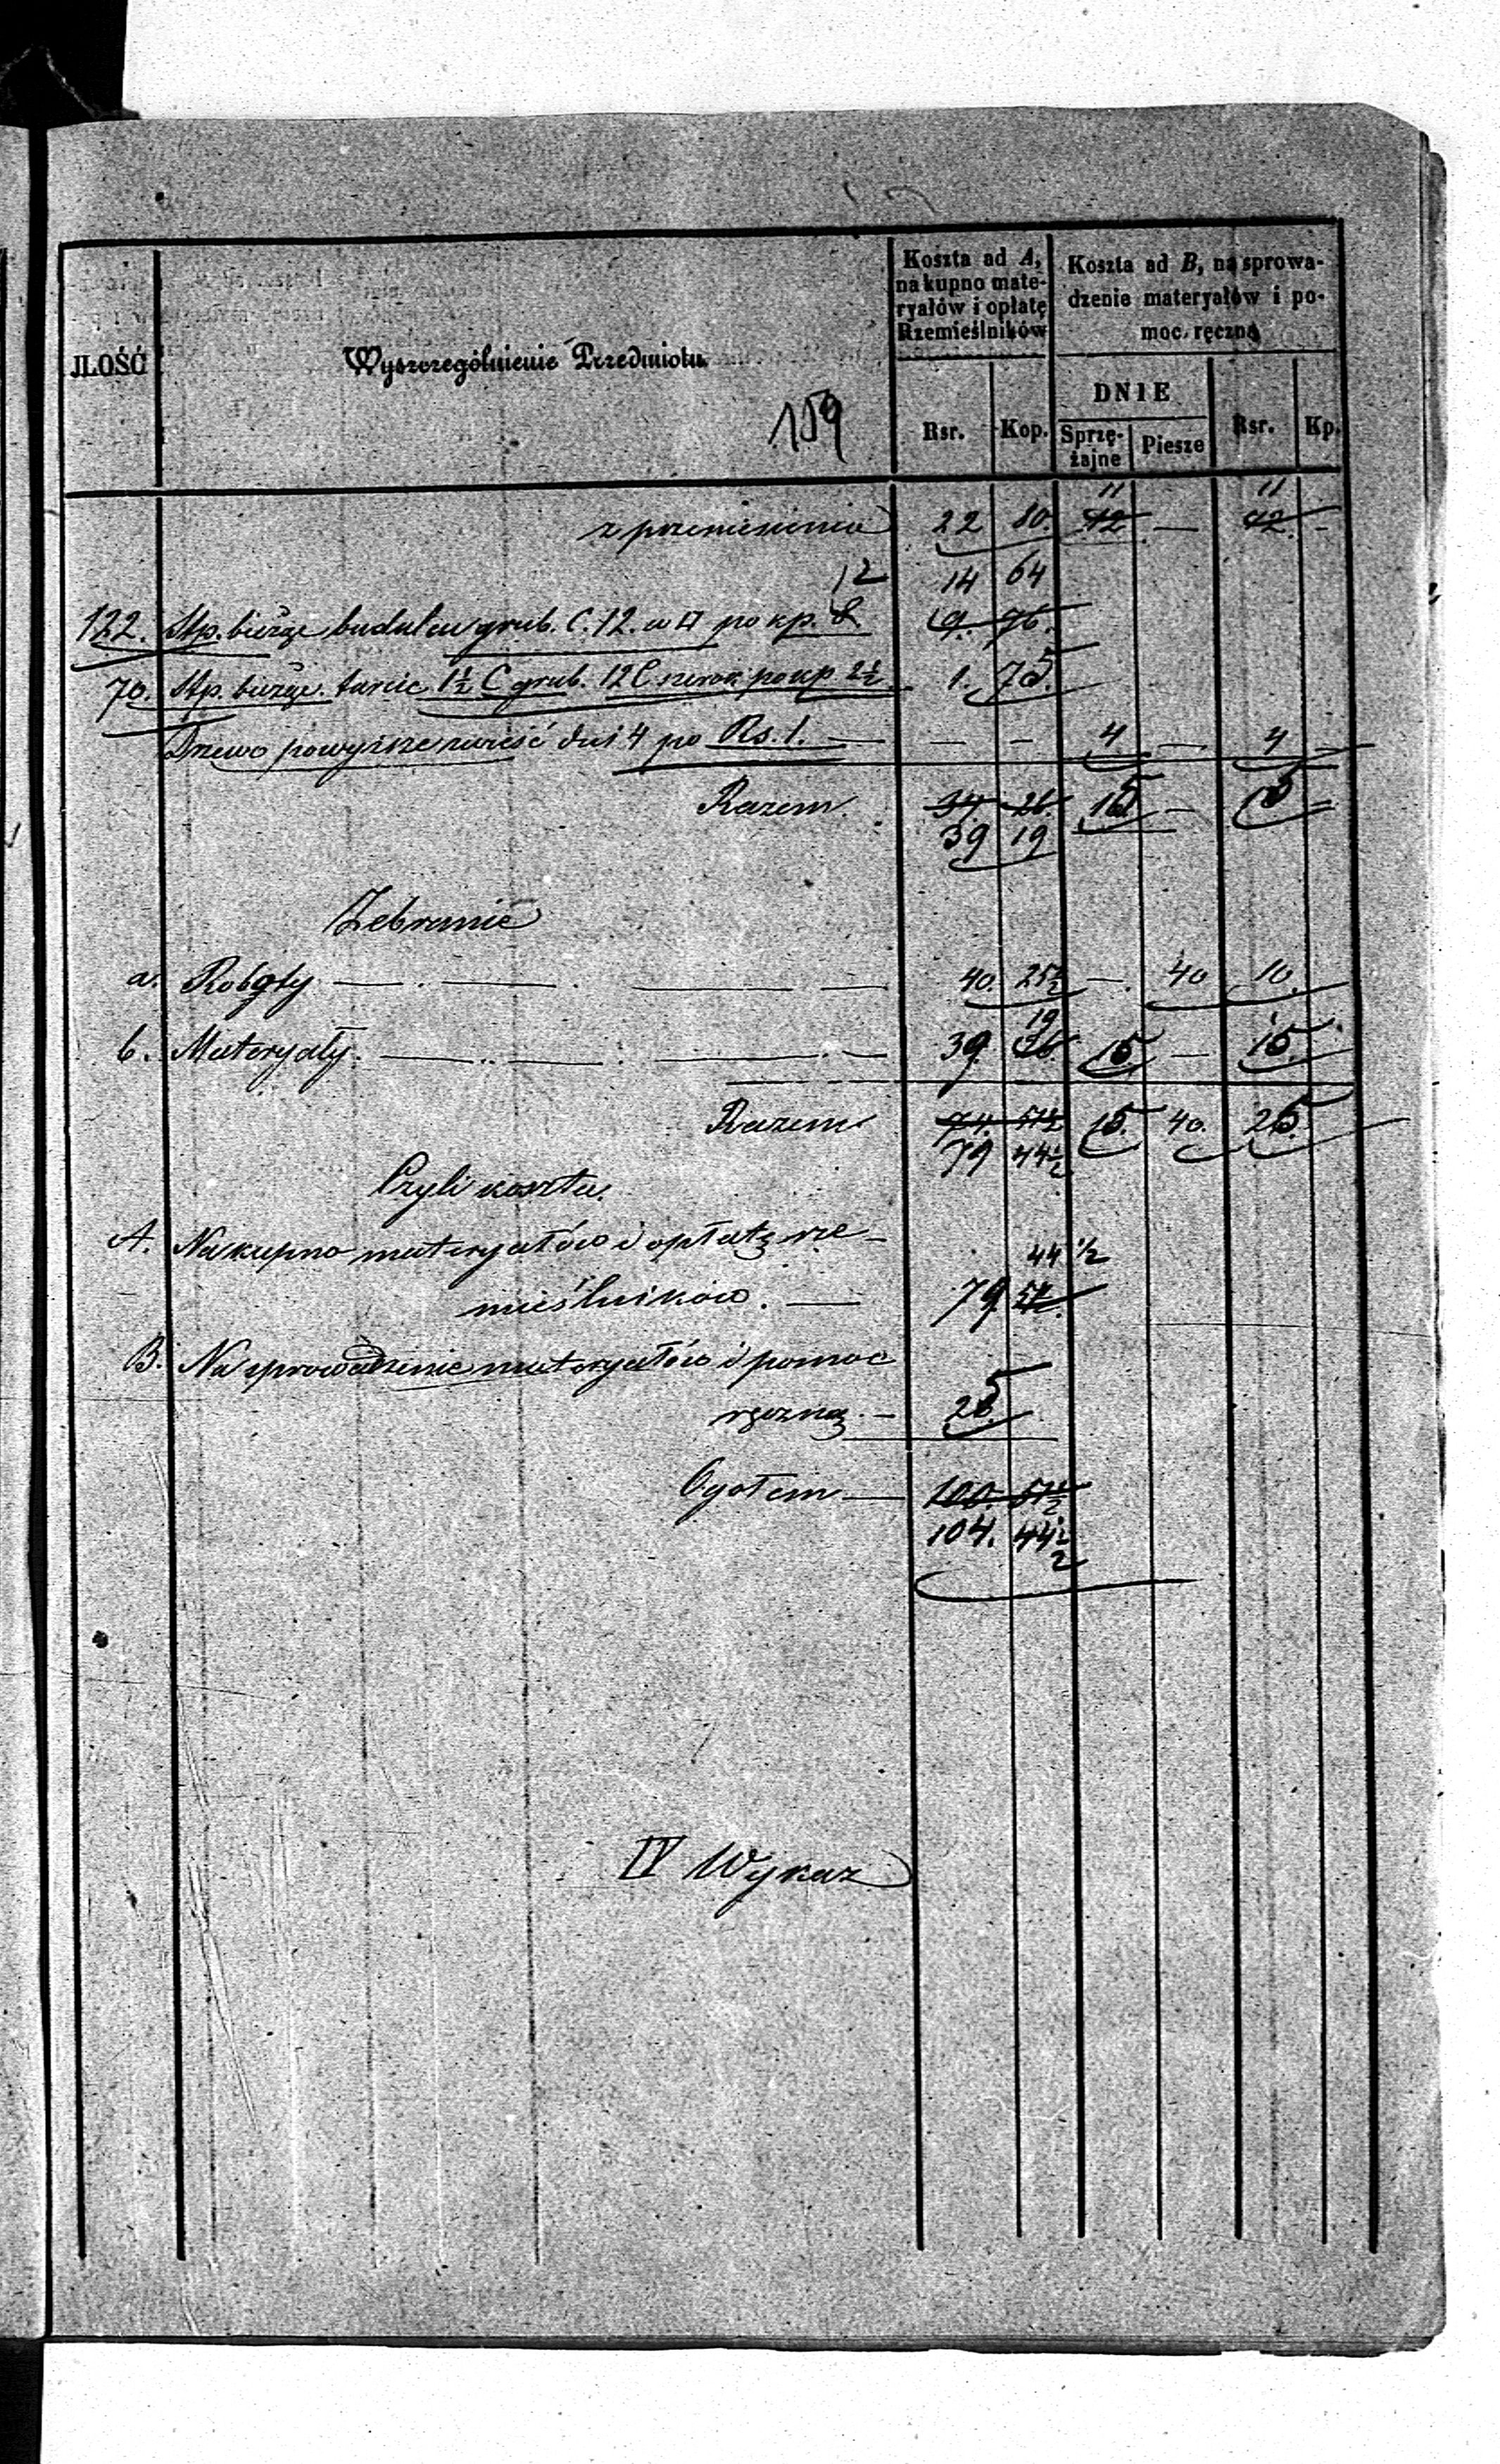 JLOŚĆ
Wyszczególnienie Przedmiotu
Koszta ad A,
na kupno mate-
ryałów i opłatę
Rzemieślników
Koszta ad B, na sprowa-
dzenie materyałów i po-
moc ręczną
DNIE
Rsr. Kop. Sprzę-
żajne Piesze Rsr. Kp.
159
11 11
z przeniesienia 22 80 12 — 12 —
12 14 64
122. Stp. bieżące budulcu grub. C. 12. w □ po kp. 8 9. 76.
70. Stp. bieżące tarcic 1½ C grub. 12 C szerok po kp 2½ 1. 75.
Drzewo powyższe zwieść dni 4 po Rs. 1. — — — 4 — 4 —
Razem 34. 26. 15 — 15 —
39 19
Zebranie
a. Roboty 40. 25½ — 40 10.
19
b. Materyały. 39. 26 15 — 15.
Razem 74. 51½ 15. 40. 25.
79 44½
Czyli koszta.
A. Na kupno materyałów i opłatę rze-
44 ½
mieślników. — 79.
B. Na sprowadzenie materyałów i pomoc
ręczną. — 25.
Ogółem — 100 51½
104. 44½
IV Wykaz